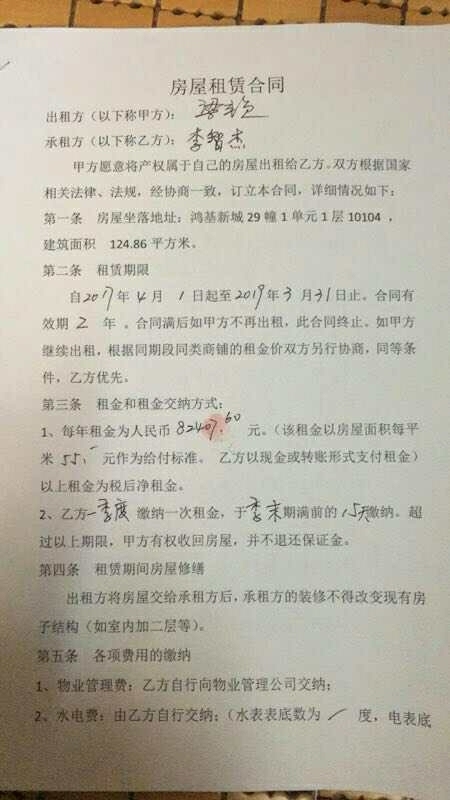 房屋租赁合同
出租方（以下称甲方）：
承租方（以下称乙方）：李智杰
甲方愿意将产权属于自己的房屋出租给乙方。双方根据国家
相关法律、法规，经协商一致，订立本合同，详细情况如下：
第一条 房屋坐落地址：鸿基新城29幢1单元1层10104，
建筑面积 124.86平方米。
第二条 租赁期限
自2017年4月1日起至2019年3月31日止。合同有
效期2年。合同满后如甲方不再出租，此合同终止。如甲方
继续出租，根据同期段同类商铺的租金价双方另行协商，同等条
件，乙方优先。
第三条 租金和租金交纳方式：
1、每年租金为人民币82407.60元。（该租金以房屋面积每平
米55.-元作为给付标准。乙方以现金或转账形式支付租金）
以上租金为税后净租金。
2、乙方一季度缴纳一次租金，于季末期满前的15天缴纳。超
过以上期限，甲方有权收回房屋，并不退还保证金。
第四条 租赁期间房屋修缮
出租方将房屋交给承租方后，承租方的装修不得改变现有房
子结构（如室内加二层等）。
第五条 各项费用的缴纳
1、物业管理费：乙方自行向物业管理公司交纳；
2、水电费：由乙方自行交纳；（水表表底数为 / 度，电表底